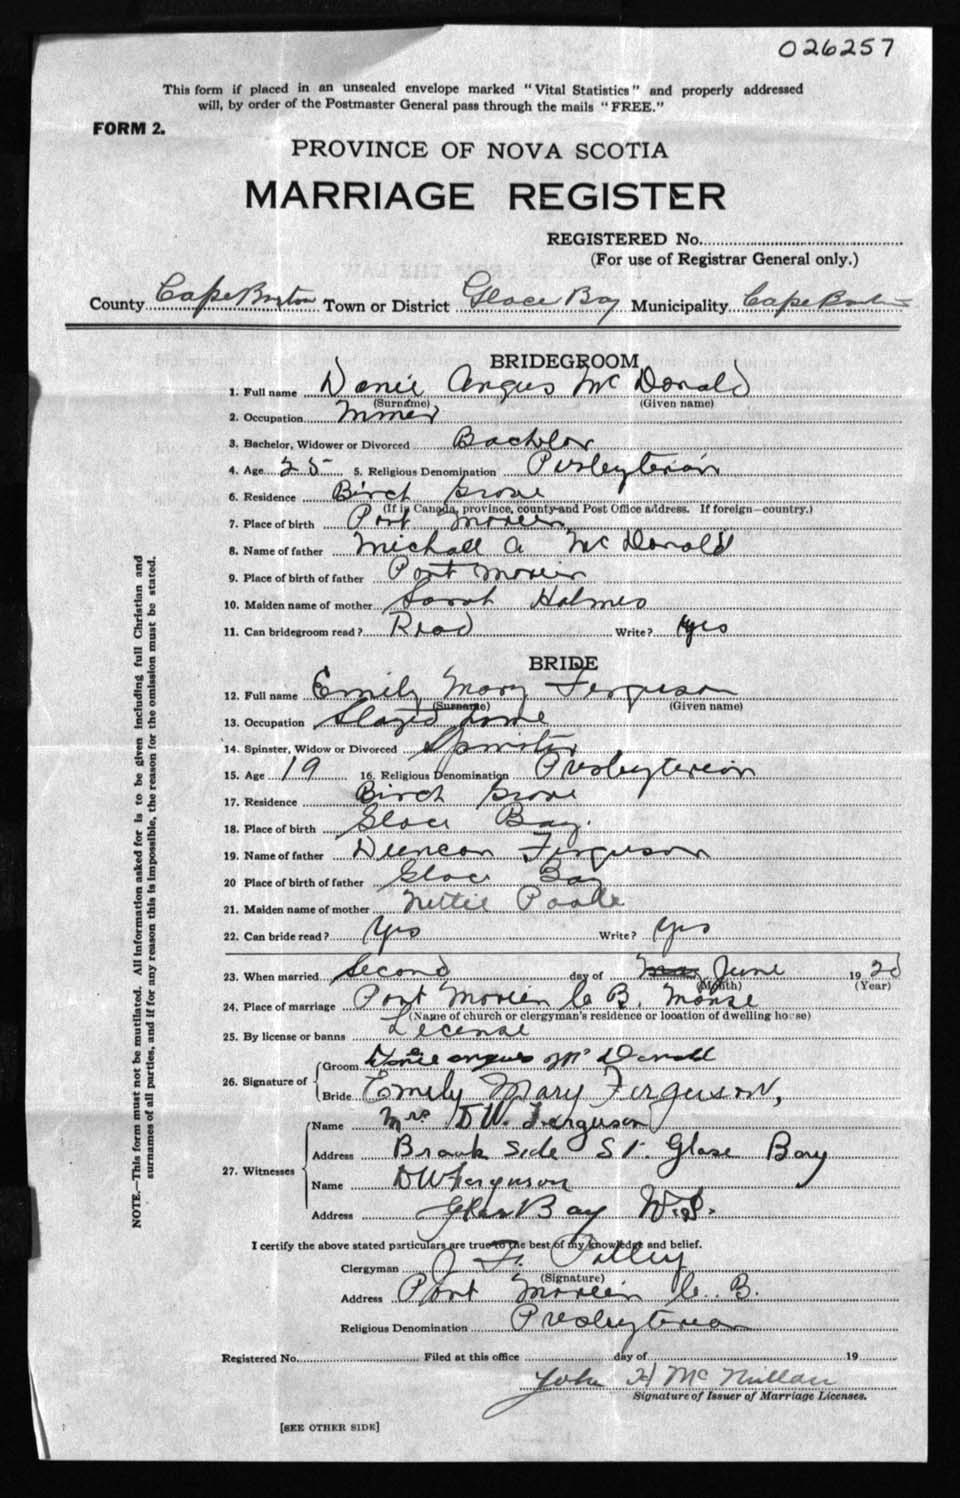 026257
This form if placed in an unsealed envelope marked "Vital Statistics" and properly addressed
will, by order of the Postmaster General pass through the mails "FREE."
FORM 2.
PROVINCE OF NOVA SCOTIA
MARRIAGE REGISTER
REGISTERED No.
(For use of Registrar General only.)
County Cape Breton Town or District Glace Bay Municipality Cape Breton
BRIDEGROOM
1. Full name Danie Angus McDonald
(Surname) (Given name)
2. Occupation Miner
3. Bachelor, Widower or Divorced Bachelor
4. Age 25 5. Religious Denomination Presbyterian
6. Residence Birch Grove
(If in Canada, province, county and Post Office address. If foreign—country.)
7. Place of birth Port Morien
8. Name of father Michael A McDonald
9. Place of birth of father Port Morien
10. Maiden name of mother Sarah Holmes
11. Can bridegroom read? Read Write? Yes
BRIDE
12. Full name Emily Mary Ferguson
(Surname) (Given name)
13. Occupation Stayed home
14. Spinster, Widow or Divorced Spinster
15. Age 19 16. Religious Denomination Presbyterian
17. Residence Birch Grove
18. Place of birth Glace Bay.
19. Name of father Duncan Ferguson
20 Place of birth of father Glace Bay
21. Maiden name of mother Nettie Poole
22. Can bride read? Yes Write? Yes
23. When married Second day of May June 1920
(Month) (Year)
24. Place of marriage Port Morien C B. Manse
(Name of church or clergyman's residence or location of dwelling house)
25. By license or banns License
26. Signature of Groom Danie Angus McDonald
Bride Emily Mary Ferguson,
27. Witnesses Name Mrs D.W. Ferguson
Address Brook Side St. Glase Bay
Name D W Ferguson
Address Glace Bay N.S.
I certify the above stated particulars are true to the best of my knowledge and belief.
Clergyman J. F. Polley
(Signature)
Address Port Morien C. B.
Religious Denomination Presbyterian
Registered No. Filed at this office day of 19
John H McMillan
Signature of Issuer of Marriage Licenses.
[SEE OTHER SIDE]
NOTE.—This form must not be mutilated. All information asked for is to be given including full Christian and
surnames of all parties, and if for any reason this is impossible, the reason for the omission must be stated.